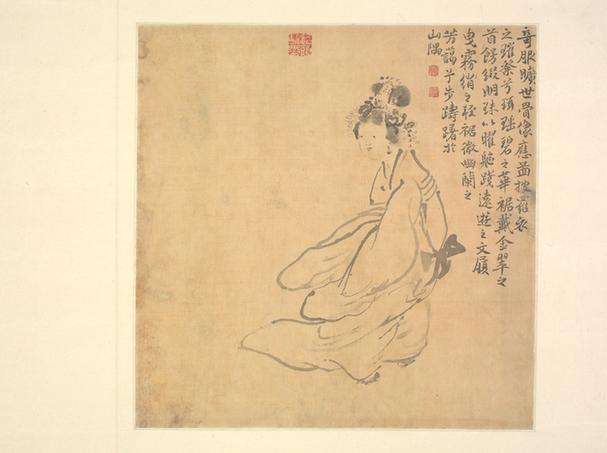 奇服曠世骨像應圖披羅衣
之璀粲兮珥瑤碧之華裾戴金翠之
首飾綴明珠以耀軀踐遠遊之文履
曳霧綃之輕裾微幽蘭之
芳藹兮步躊躇於
山隅